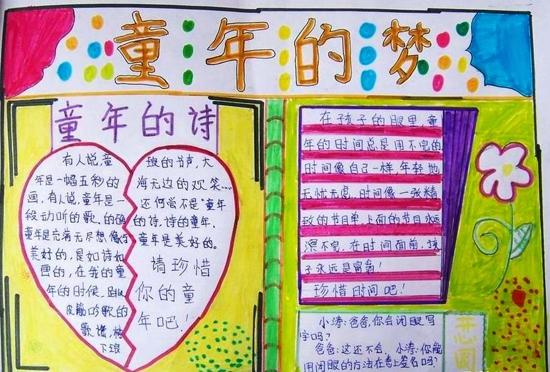 童年的梦
童年的诗
有人说,童
年是一幅五彩的
画,有人说,童年是一
段动听的歌,的确
童年是充满无尽想像的
美好的,是如诗如
画的,在我的童
年的时候,
皮筋的歌的
歌谱,
下班
班的节,大
海无边的欢笑…
还何尝不是童年
的诗,诗的童年,
童年是美好的。
请珍惜
你的童
年吧!
在孩子的眼里,童
年的时间总是用不完的
时间像自己一样年轻地
无忧无虑,时间像一张精
致的节目单,上面的节目永远
演不完,在时间面前,孩
子永远是富翁!
珍惜时间吧!
小涛:爸爸,你会闭眼写
字吗?
爸爸:这还不会,小涛:你能
用闭眼的方法在卷上签名吗?
开心园